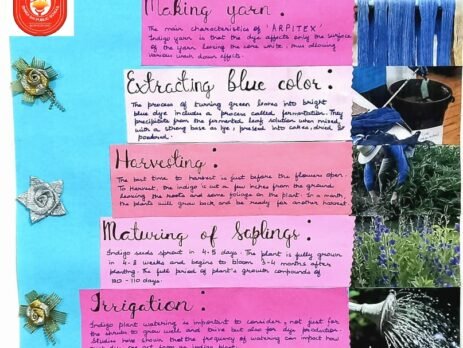 Making yarn :
The main characteristics of 'ARPITEX'
Indigo yarn is that the dye affects only the surface
of the yarn leaving the core white, thus allowing
various wash down effects.
Extracting blue color :
The process of turning green leaves into bright
blue dye includes a process called fermentation. They
precipitate from the fermented leaf solution when mixed
with a strong base as lye, pressed into cakes, dried &
powdered.
Harvesting :
The best time to harvest is just before the flowers open.
To Harvest, the indigo is cut a few inches from the ground
leaving the roots and some foliage on the plant. In a month,
the plants will grow back and be ready for another harvest.
Maturing of Saplings :
Indigo seeds sprout in 4-5 days. The plant is fully grown
in 4-8 weeks and begins to bloom 3-4 months after
planting. The full period of plant's growth compounds of
180-110 days.
Irrigation :
Indigo plant watering is important to consider, not just for
the shrub to grow well and thrive but also for dye production.
Studies have shown that the frequency of watering can impact how